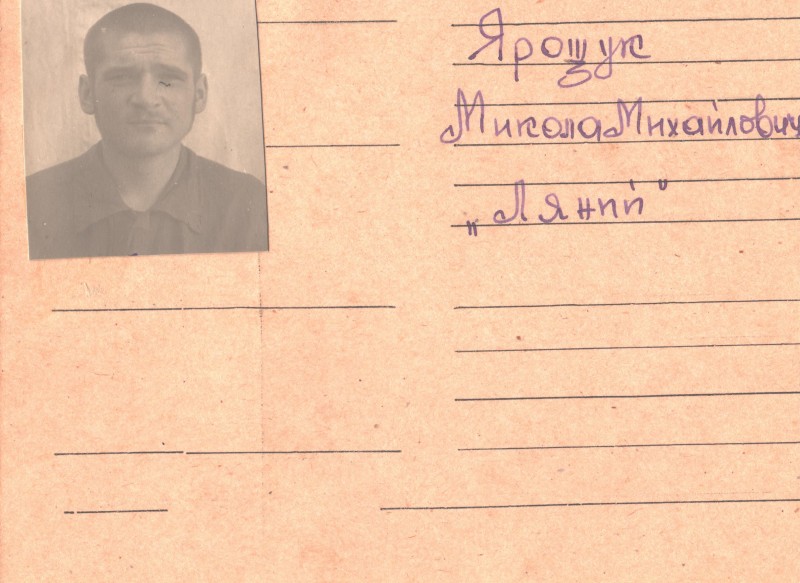 Ярощук
Микола Михайлович
„Ляний"